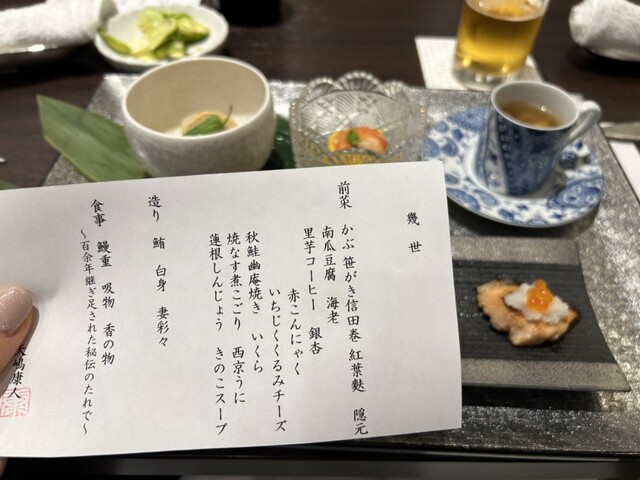 幾世
前菜 かぶ 笹がき信田巻 紅葉麩 隠元
南瓜豆腐 海老
里芋コーヒー 銀杏
赤こんにゃく
いちじくくるみチーズ
秋鮭幽庵焼き いくら
焼なす煮こごり 西京うに
蓮根しんじょう きのこスープ
造り 鮪 白身 妻彩々
食事 鰻重 吸物 香の物
～百余年継ぎ足された秘伝のたれで～
嶋康人